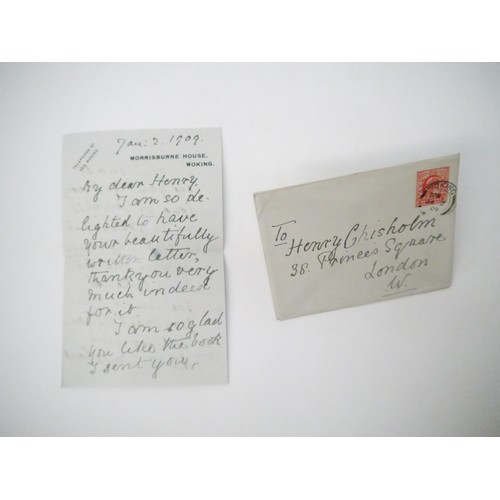 Jan: 2. 1909.
MORRISBURNE HOUSE,
WOKING.
My dear Henry
I am so de-
lighted to have
your beautifully
written letter,
thank you very
much indeed
for it.
I am so glad
you like the book
I sent you,
To
Henry Chisholm
38. Princes Square
London
W.